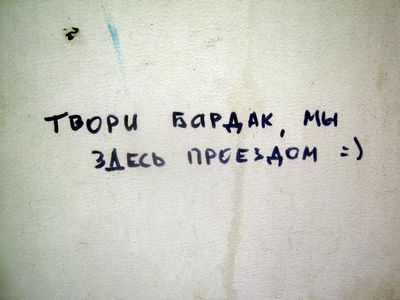 ТВОРИ БАРДАК, МЫ
ЗДЕСЬ ПРОЕЗДОМ =)